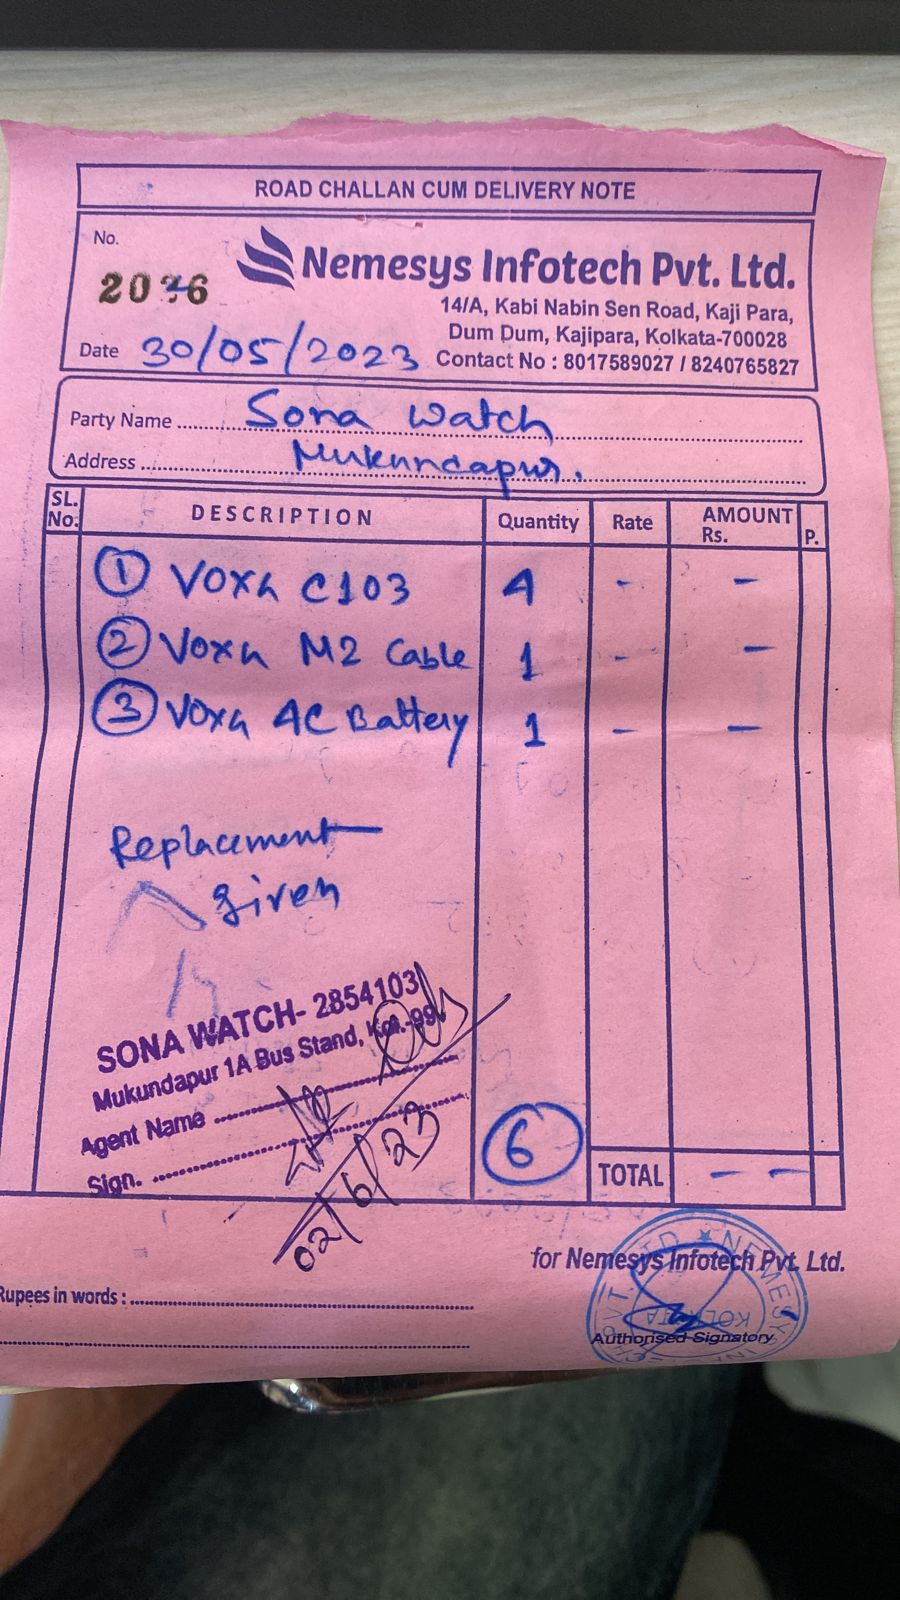 ROAD CHALLAN CUM DELIVERY NOTE
No.
Nemesys Infotech Pvt. Ltd.
14/A, Kabi Nabin Sen Road, Kaji Para,
Dum Dum, Kajipara, Kolkata-700028
Date 30/05/2023 Contact No : 8017589027 / 8240765827
Party Name Sona Watch
Address Mukundapur.
SL. No. DESCRIPTION Quantity Rate AMOUNT Rs. P.
① Voxa C103 4 - -
② Voxa M2 Cable 1 - -
③ Voxa 4C Battery 1 - -
Replacement
given
SONA WATCH- 2854103
Mukundapur 1A Bus Stand, Kol.-99
Agent Name
Sign.
02/6/23
6 TOTAL - -
for Nemesys Infotech Pvt. Ltd.
Rupees in words :
Authorised Signatory
NEMESYS
KOLKATA